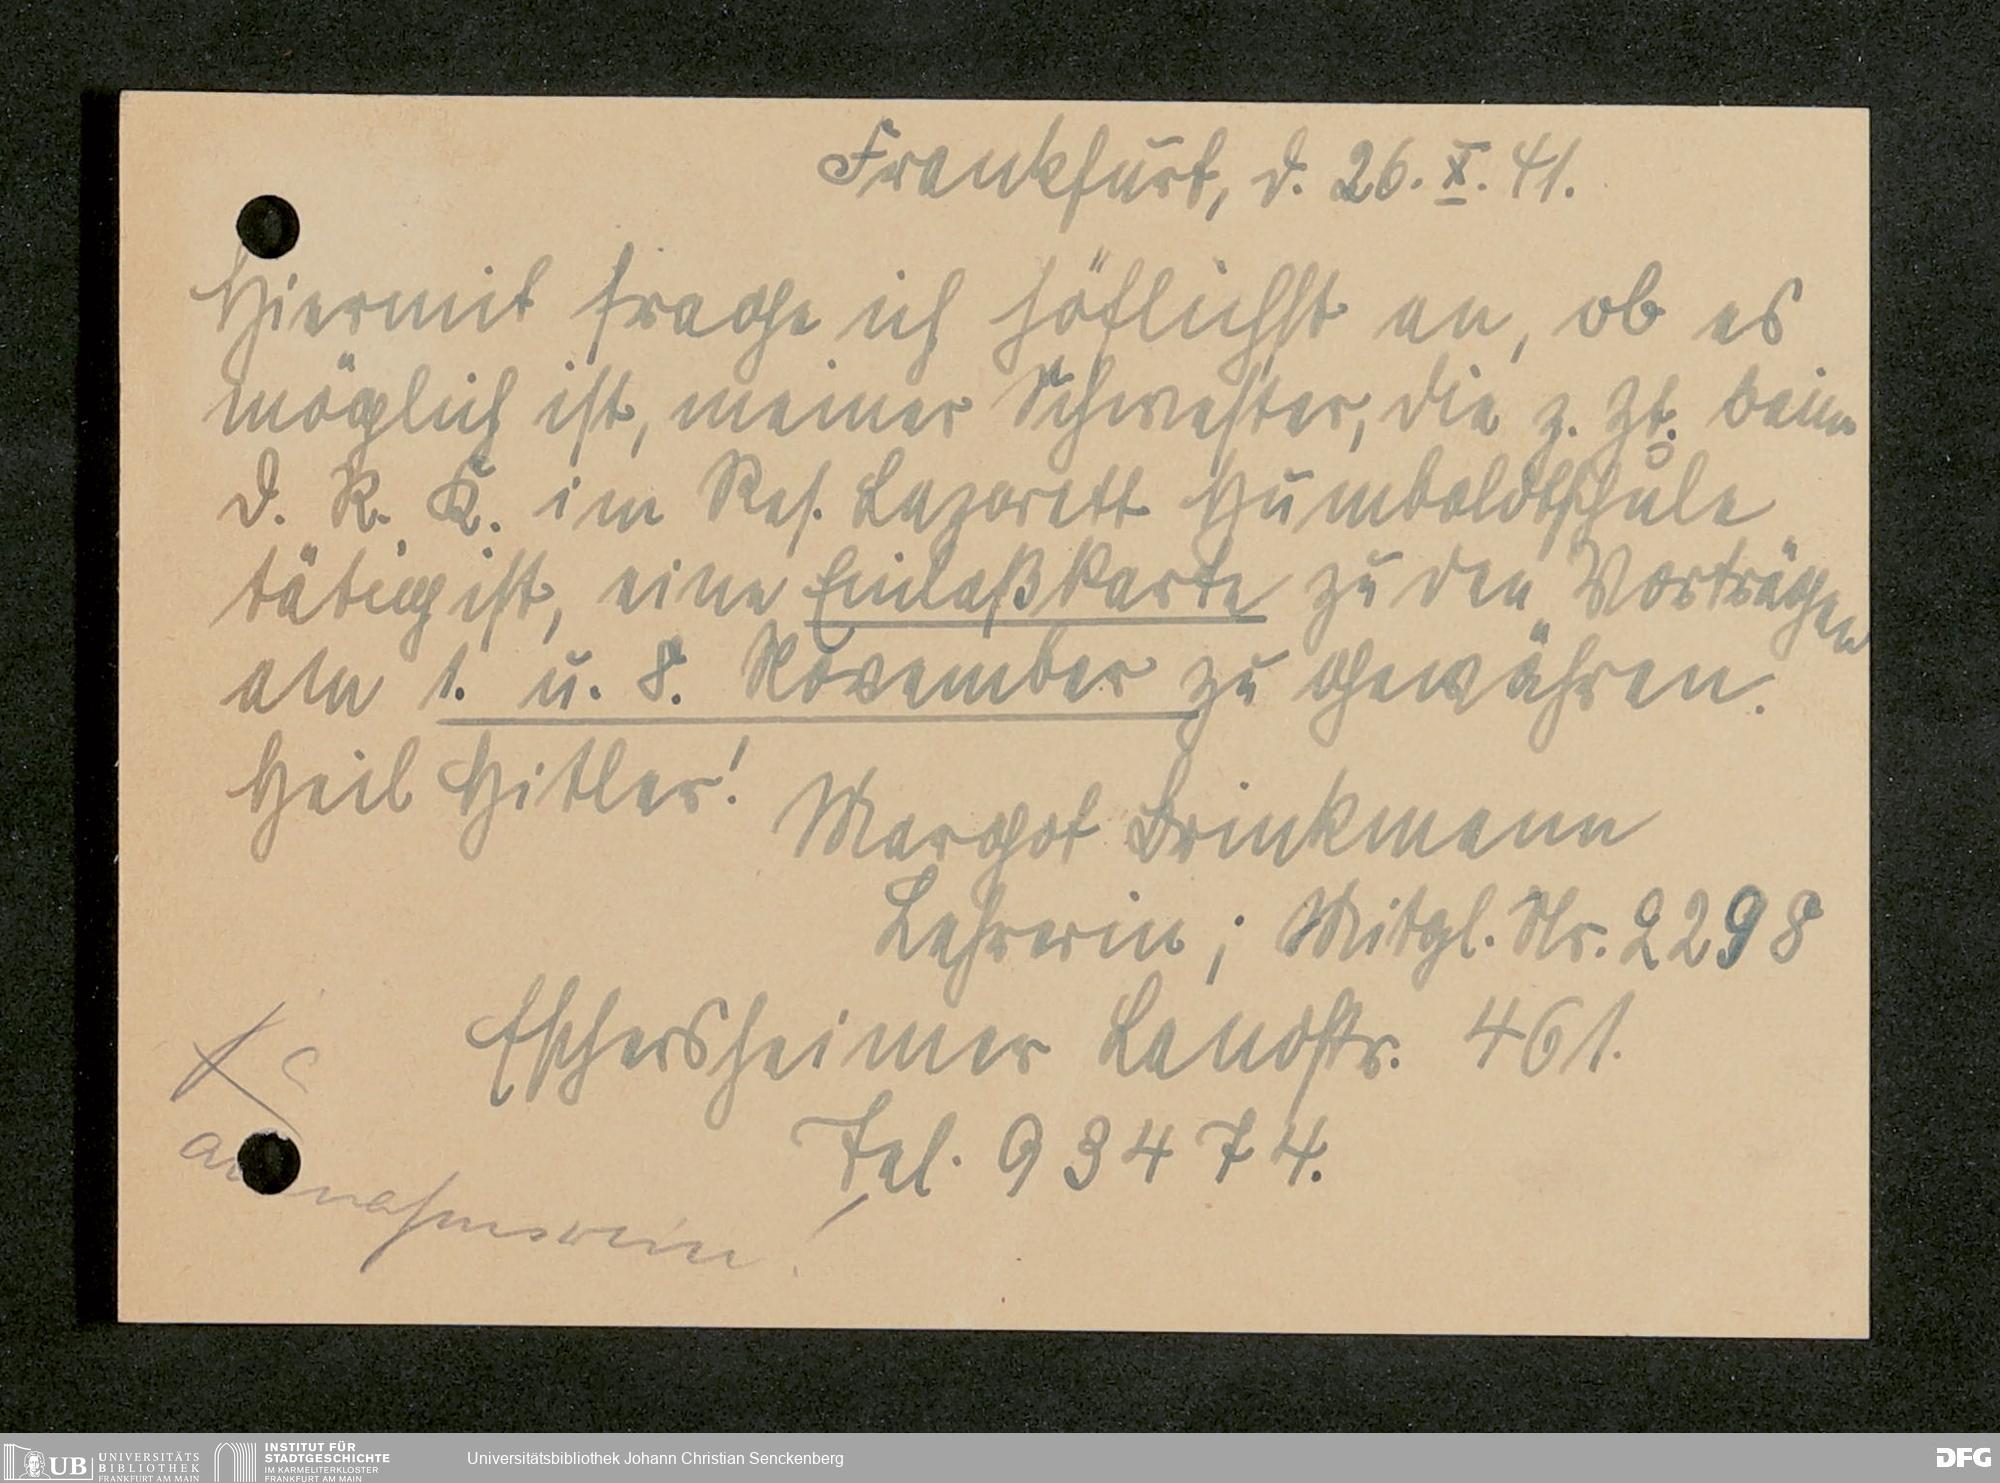 Frankfurt, d. 26. X. 41.
Hiermit frage ich höflichst an, ob es
möglich ist, meiner Schwester, die z. Zt. beim
D. R. K. im Res. Lazarett Humboldtschule
tätig ist, eine Einlaßkarte zu den Vorträgen
am 1. u. 8. November zu gewähren.
Heil Hitler!
Margot Brinkmann
Lehrerin; Mitgl. Nr. 2298
Eschersheimer Landstr. 461.
Tel. 93474.
UB UNIVERSITÄTS
BIBLIOTHEK
FRANKFURT AM MAIN
INSTITUT FÜR
STADTGESCHICHTE
IM KARMELITERKLOSTER
FRANKFURT AM MAIN
Universitätsbibliothek Johann Christian Senckenberg
DFG